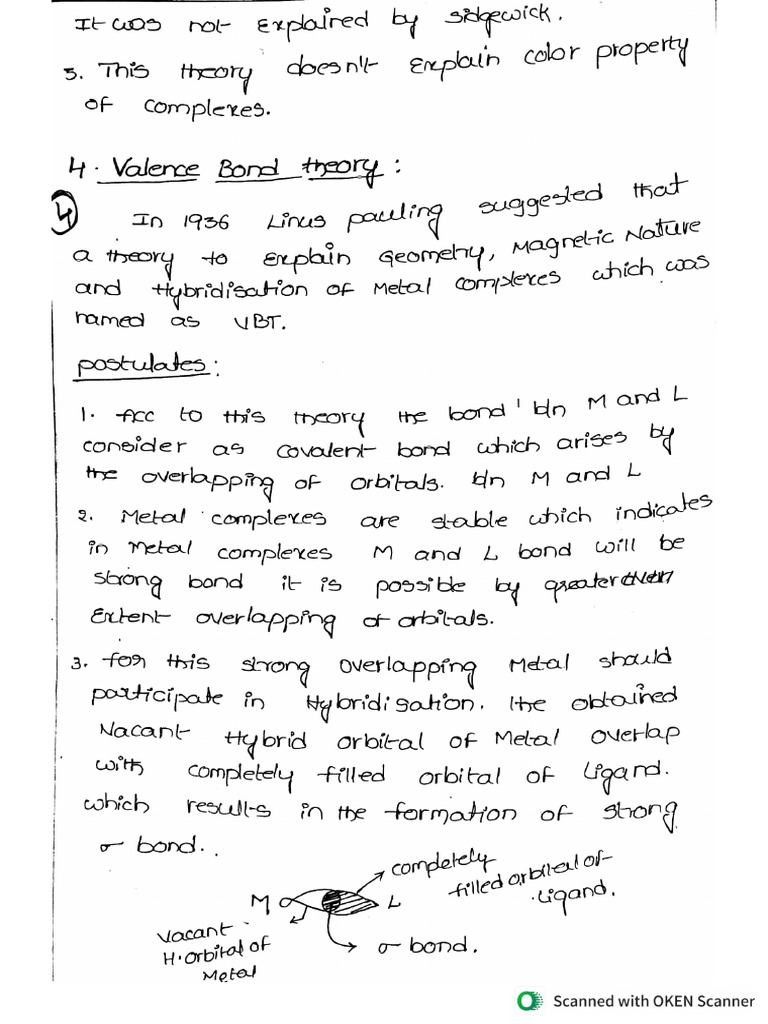 It was not Explained by Sidgewick.
5. This theory doesn't Explain color property
of complexes.
4. Valence Bond theory:
4
In 1936 Linus pauling suggested that
a theory to Explain Geometry, Magnetic Nature
and Hybridisation of Metal complexes which was
named as VBT.
postulates:
1. Acc to this theory the bond b/n M and L
consider as covalent bond which arises by
the overlapping of orbitals. b/n M and L
2. Metal complexes are stable which indicates
in Metal complexes M and L bond will be
strong bond it is possible by greater
Extent overlapping of orbitals.
3. for this strong overlapping Metal should
participate in Hybridisation. The obtained
Vacant Hybrid orbital of Metal overlap
with completely filled orbital of Ligand.
which results in the formation of strong
σ bond.
completely
filled orbital of
Ligand.
M L
Vacant
H.orbital of
Metal
σ bond.
Scanned with OKEN Scanner